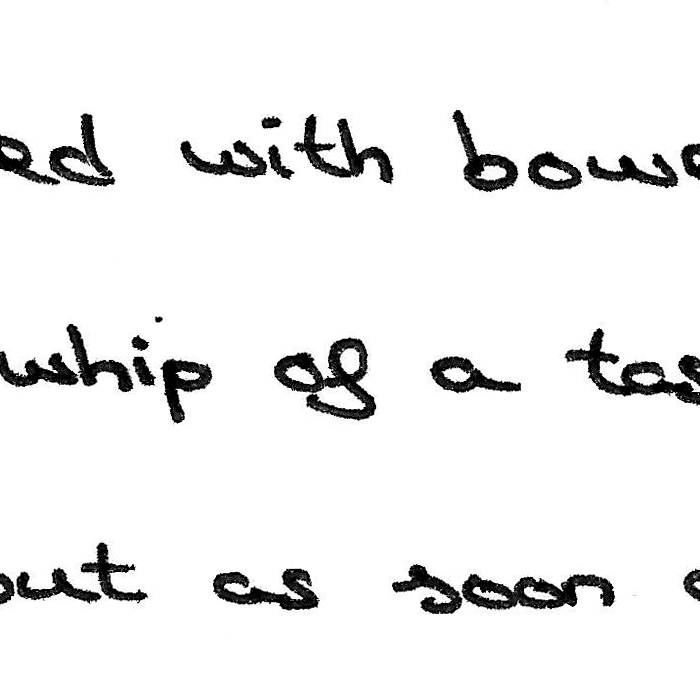 ed with bowe
whip of a tas
out as soon